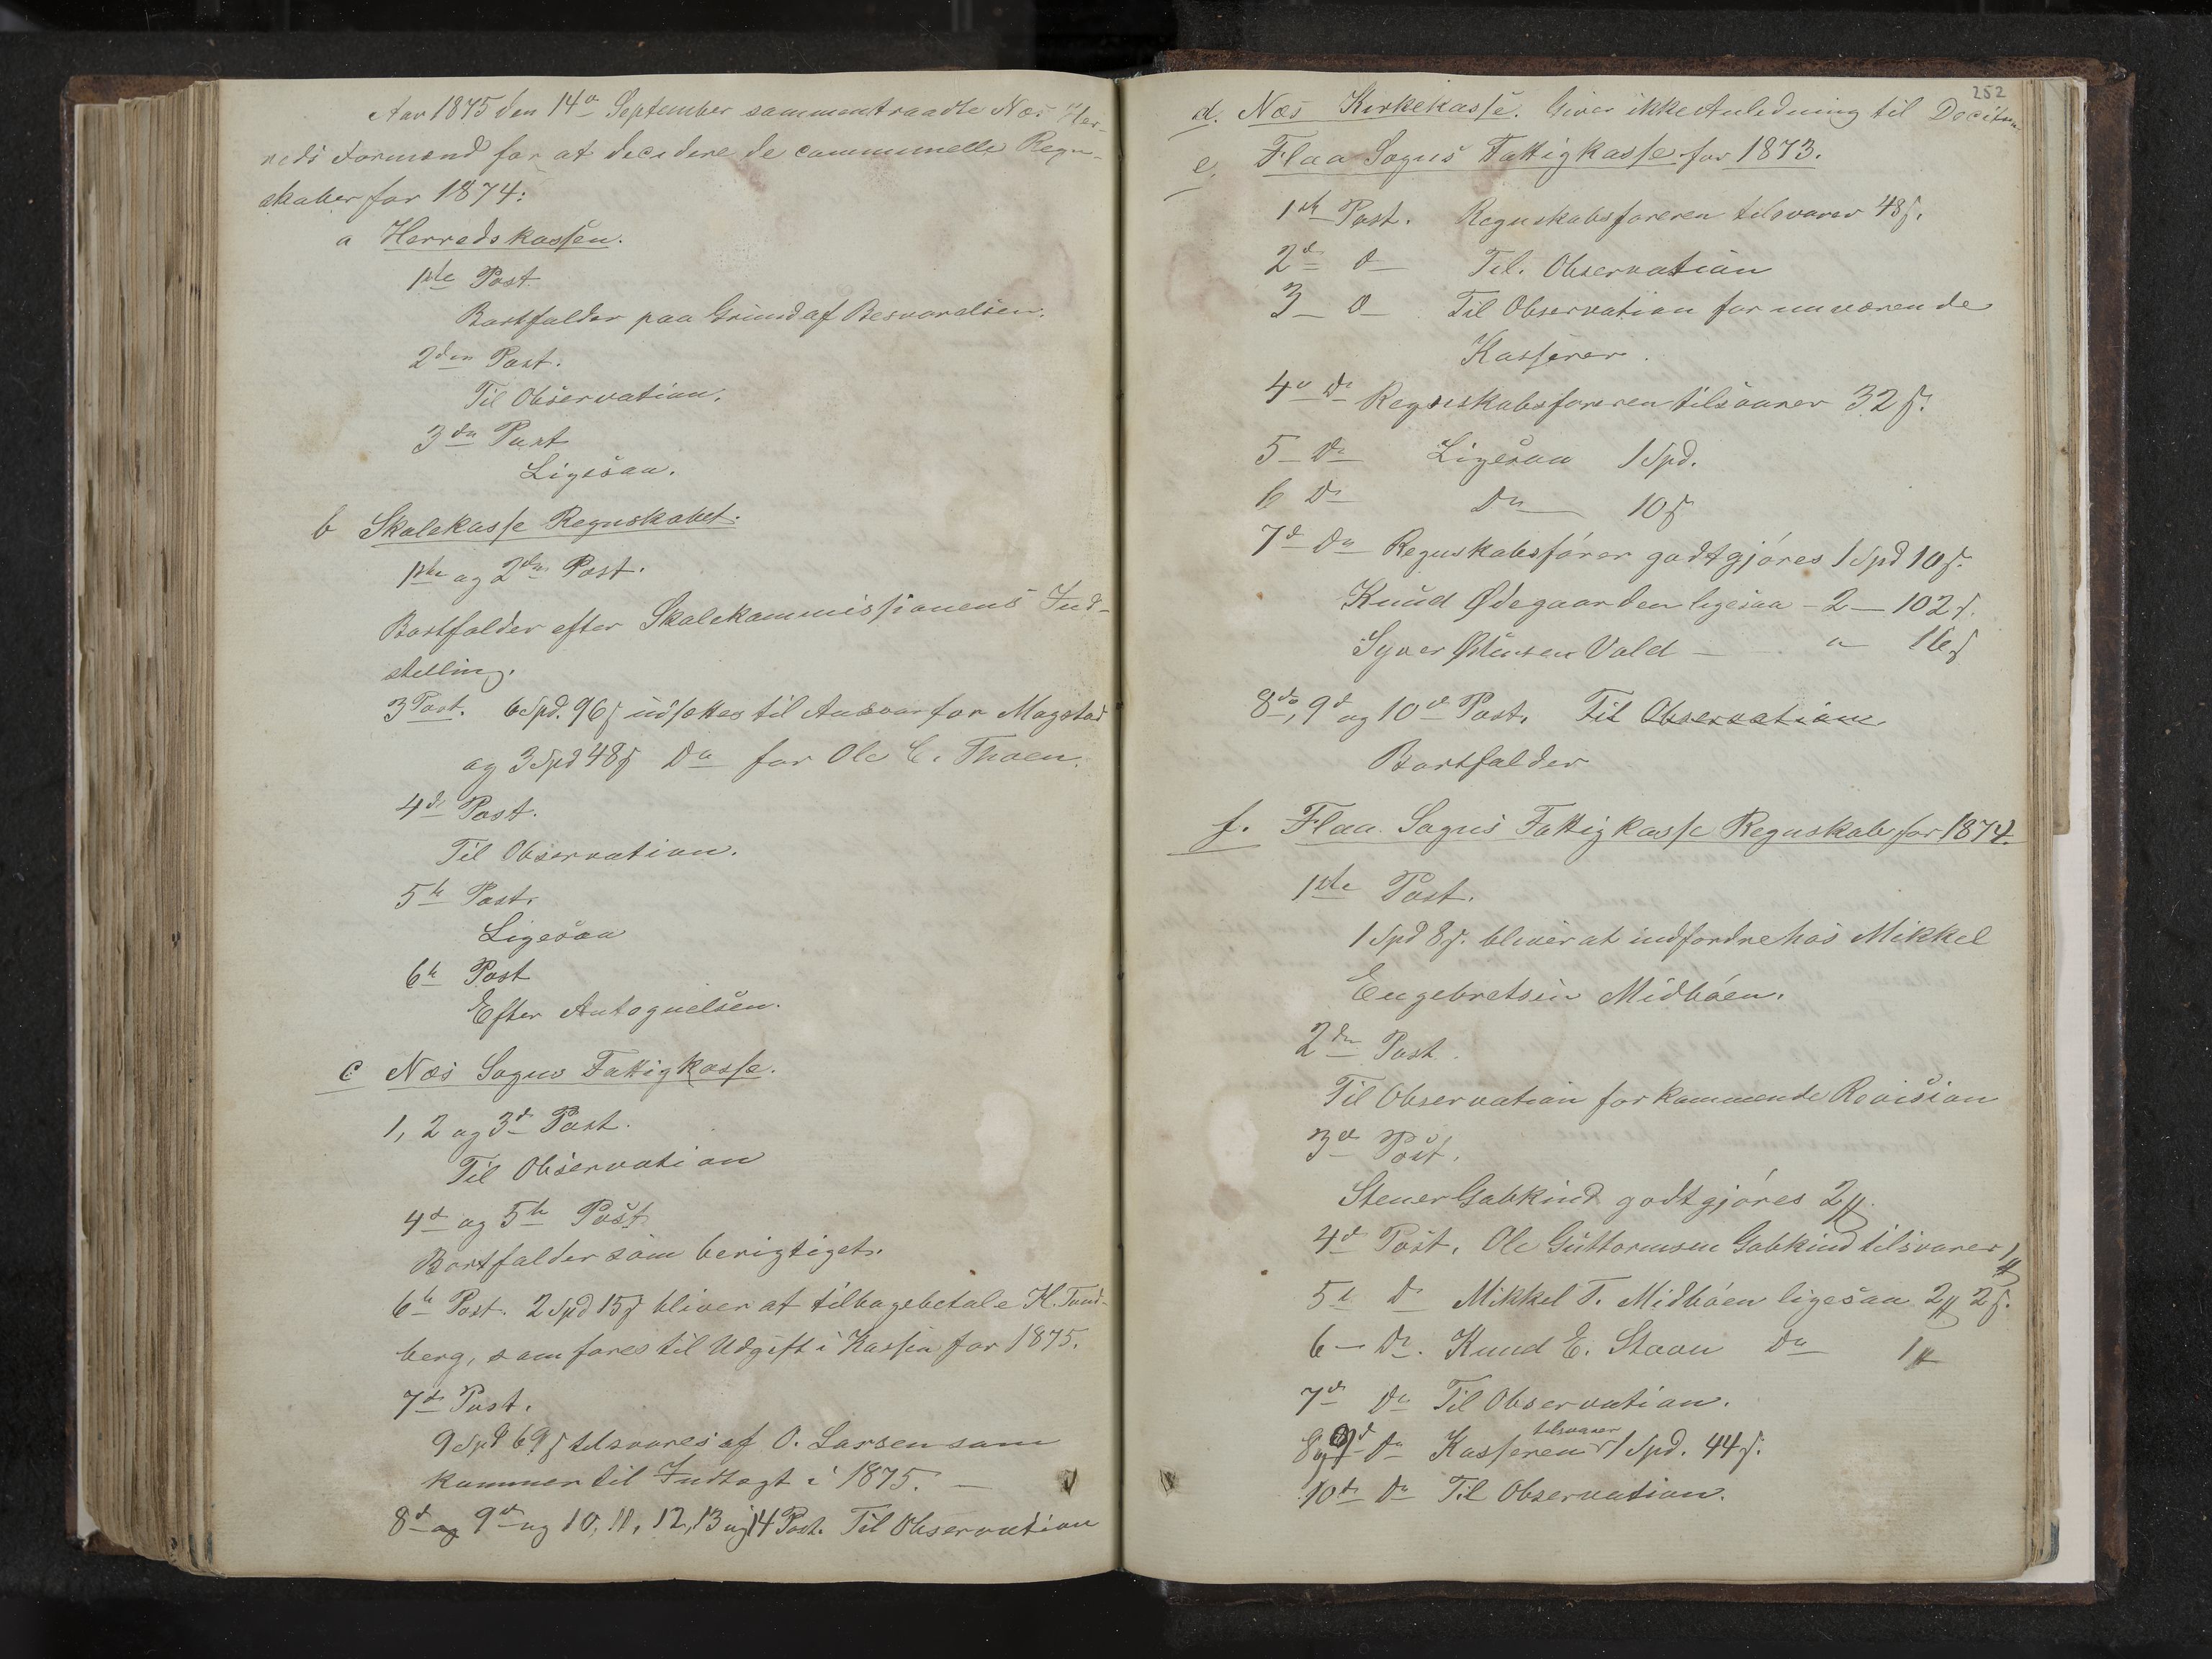 Aar 1875 den 14de September sammentraadte Næs Her-
reds Formænd for at decidere de communnelle Regn-
skaber for 1874:
a Herredskassen.
1ste Post
Bortfalder paa Grund af Besvarelsen.
2den Post.
Til Observation.
3die Post
Ligesaa.
b Skolekasse Regnskabet.
1ste og 2den Post.
Bortfalder efter Skolekommissionens Ind-
stilling.
3 Post. 6 Spd. 96 s udsættes til Ansvar for Magstad
og 3 Spd 48 s Do for Ole C. Thoen.
4de Post.
Til Observation.
5te Post.
Ligesaa
6te Post
Efter Antagnelsen.
c Næs Sogns Fattigkasse.
1, 2 og 3die Post.
Til Observation
4de og 5te Post
Bortfalder som berigtiget.
6te Post. 2 Spd 15 s bliver at tilbagebetale K. Tund-
berg, som føres til Udgift i Kassen for 1875.
7de Post.
9 Spd 69 s tilsvares af O. Larsen som
kommer til Indtægt i 1875. —
8de og 9de og 10, 11, 12, 13 og 14 Post. Til Observation
252
d. Næs Kirkekasse. Giver ikke Anledning til
e. Flaa Sogns Fattigkasse for 1873.
1ste Post. Regnskabsføreren tilsvarer 48 s.
2den Do Til Observation
3 Do Til Observation for nuværende
Kasserer.
4de Do Regnskabsføreren tilsvarer 32 s.
5 Do Ligesaa 1 Spd.
6 Do Do 10 s
7de Do Regnskabsfører godtgjøres 1 Spd 10 s.
Knud Ødegaarden ligesaa - 2 — 102 s.
Syver Østensen Vold — " 16 s
8de, 9de og 10de Post. Til Observation.
Bortfalder
f. Flaa Sogns Fattigkasse Regnskab for 1874.
1ste Post.
1 Spd 8 s. bliver at indfordre hos Mikkel
Engebretsen Midbøen.
2den Post.
Til Observation for kommende Revision
3die Post.
Stener Gabkind godtgjøres 2 ₰.
4de Post. Ole Guttormsen Gabkind tilsvarer 1 ₰
5te Do Mikkel T. Midbøen ligesaa 2 ₰ 2 s.
6 — Do. Knud E. Stavn Do 1 ₰
7de Do Til Observation.
8 og 9de Do Kassereren tilsvarer 1 Spd. 44 s.
10de Do Til Observation.